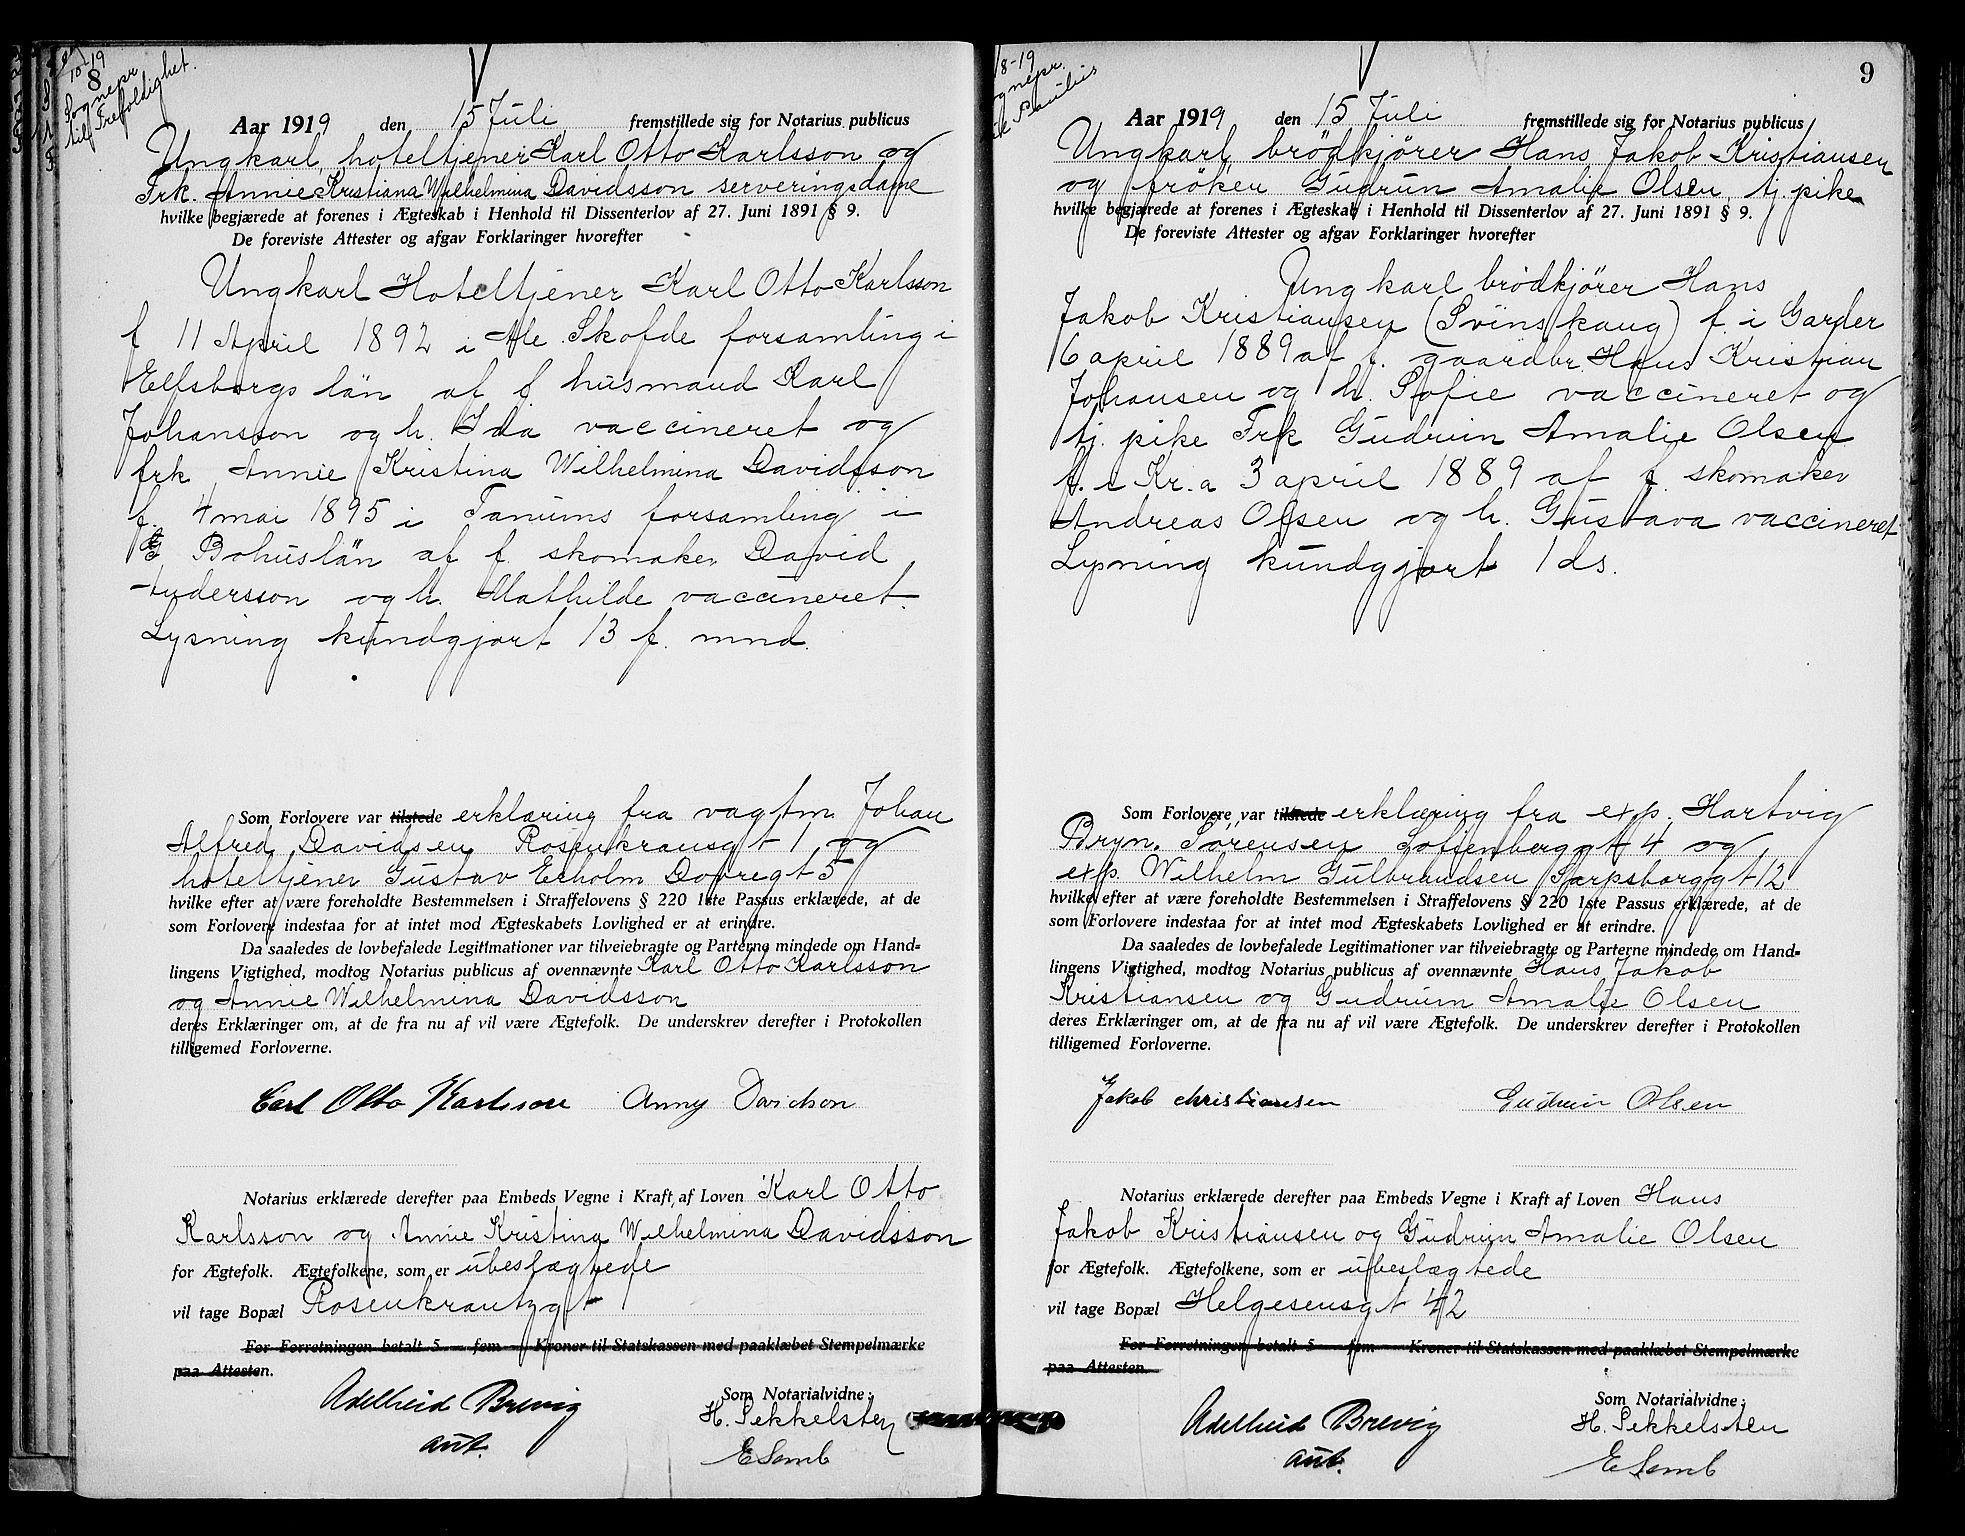 10/8 19
Sognepr
til Trefoldighet.
Aar 1919 den 15 Juli fremstillede sig for Notarius publicus
Ungkarl, hoteltjener Karl Otto Karlsson og
Frk. Annie Kristiana Wilhelmina Davidsson serveringsdame
hvilke begjærede at forenes i Ægteskab i Henhold til Dissenterlov af 27. Juni 1891 § 9.
De foreviste Attester og afgav Forklaringer hvorefter
Ungkarl Hoteltjener Karl Otto Karlsson
f 11 April 1892 i Ale Skofde forsamling i
Elfsborgs län af f. husmand Karl
Johansson og h. Ida vaccineret og
frk Annie Kristina Wilhelmina Davidsson
f. 4 mai 1895 i Tanums forsamling i
Bohuslän af f. skomaker David
Andersson og h. Mathilde vaccineret.
Lysning kundgjort 13 f. mnd.
Som Forlovere var tilstede erklæring fra vagtm. Johan
Alfred Davidsen Rosenkransgt 1 og
hoteltjener Gustav Ekholm Dovregt 5
hvilke efter at være foreholdte Bestemmelsen i Straffelovens § 220 1ste Passus erklærede, at de
som Forlovere indestaa for at intet mod Ægteskabets Lovlighed er at erindre.
Da saaledes de lovbefalede Legitimationer var tilveiebragte og Parterne mindede om Hand-
lingens Vigtighed, modtog Notarius publicus af ovennævnte Karl Otto Karlsson
og Annie Wilhelmina Davidsson
deres Erklæringer om, at de fra nu af vil være Ægtefolk. De underskrev derefter i Protokollen
tilligemed Forloverne.
Carl Otto Karlsson Anny Davidson
Notarius erklærede derefter paa Embeds Vegne i Kraft af Loven Karl Otto
Karlsson og Annie Kristina Wilhelmina Davidsson
for Ægtefolk. Ægtefolkene, som er ubeslægtede
vil tage Bopæl Rosenkrantzgt 1
For Forretningen betalt 5 — fem — Kroner til Statskassen med paaklæbet Stempelmærke
paa Attesten.
Adelheid Brevig
aut.
Som Notarialvidne:
H. Sekkelsten
E Semb
9
8-19
Sognepr.
Paulus
Aar 1919 den 15 Juli fremstillede sig for Notarius publicus
Ungkarl brödkjører Hans Jakob Kristiansen
og fröken Gudrun Amalie Olsen, tj. pike
hvilke begjærede at forenes i Ægteskab i Henhold til Dissenterlov af 27. Juni 1891 § 9.
De foreviste Attester og afgav Forklaringer hvorefter
Ungkarl brödkjører Hans
Jakob Kristiansen (Svinskaug) f. i Garder
6 april 1889 af f. gaardbr. Hans Kristian
Johansen og h. Sofie vaccineret og
tj. pike Frk Gudrun Amalie Olsen
f. i Kr.a 3 april 1889 af f. skomaker
Andreas Olsen og h. Gustava vaccineret
Lysning kundgjort 1 ds.
Som Forlovere var tilstede erklæring fra exp. Hartvig
Bryn. Sörensen Toftenberggt 4 og
exp. Wilhelm Gulbrandsen Sarpsborggt 12
hvilke efter at være foreholdte Bestemmelsen i Straffelovens § 220 1ste Passus erklærede, at de
som Forlovere indestaa for at intet mod Ægteskabets Lovlighed er at erindre.
Da saaledes de lovbefalede Legitimationer var tilveiebragte og Parterne mindede om Hand-
lingens Vigtighed, modtog Notarius publicus af ovennævnte Hans Jakob
Kristiansen og Gudrun Amalie Olsen
deres Erklæringer om, at de fra nu af vil være Ægtefolk. De underskrev derefter i Protokollen
tilligemed Forloverne.
Jakob Christiansen Gudrun Olsen
Notarius erklærede derefter paa Embeds Vegne i Kraft af Loven Hans
Jakob Kristiansen og Gudrun Amalie Olsen
for Ægtefolk. Ægtefolkene, som er ubeslægtede
vil tage Bopæl Helgesensgt 42
For Forretningen betalt 5 — fem — Kroner til Statskassen med paaklæbet Stempelmærke
paa Attesten.
Adelheid Brevig
aut.
Som Notarialvidne:
H. Sekkelsten
E Semb